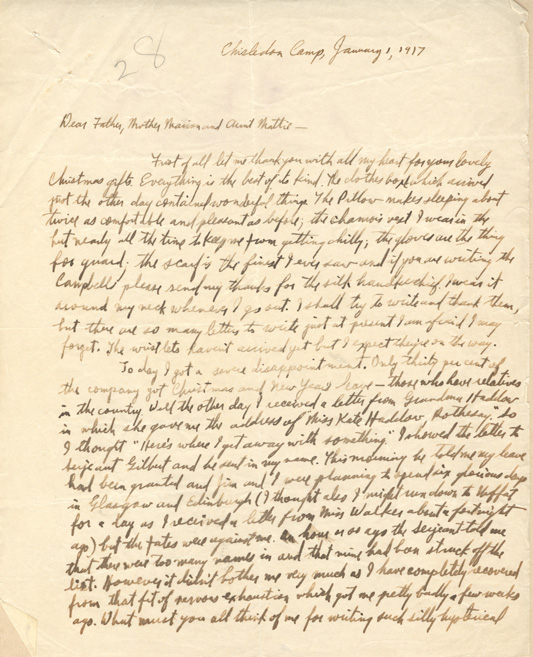 28
Chisledon Camp, January 1, 1917
Dear Father, Mother Marion and Aunt Mattie —
First of all let me thank you with all my heart for your lovely
Christmas gifts. Everything is the best of its kind. The clothes box which arrived
just the other day contained wonderful things. The Pillow makes sleeping about
twice as comfortable and pleasant as before; the chamois vest I wear in the
hut nearly all the time to keep me from getting chilly; the gloves are the thing
for guard. The scarf is the finest I ever saw and if you are writing the
Campbells please send my thanks for the silk handkerchief. I wear it
around my neck whenever I go out. I shall try to write and thank them,
but there are so many letters to write just at present I am afraid I may
forget. The wristlets haven't arrived yet but I expect they're on the way.
To day I got a severe disappointment. Only thirty per cent of
the company got Christmas and New Year's leave — those who have relatives
in the country. Well the other day I received a letter from Grandma Haddow
in which she gave me the address of Miss Kate Haddow, Rothesay. So
I thought "Here's where I get away with something." I showed the letter to
Sergeant Gilbert and he sent in my name. This morning he told me my leave
had been granted and Jim and I were planning to spend six glorious days
in Glasgow and Edinburgh (I thought also I might run down to Moffat
for a day as I received a letter from Miss Walker about a fortnight
ago) but the fates were against me. An hour or so ago the Sergeant told me
that there were too many names in and that mine had been struck off the
list. However it didn't bother me very much as I have completely recovered
from that fit of nervous exhaustion which got me pretty badly a few weeks
ago. What must you all think of me for writing such silly hysterical